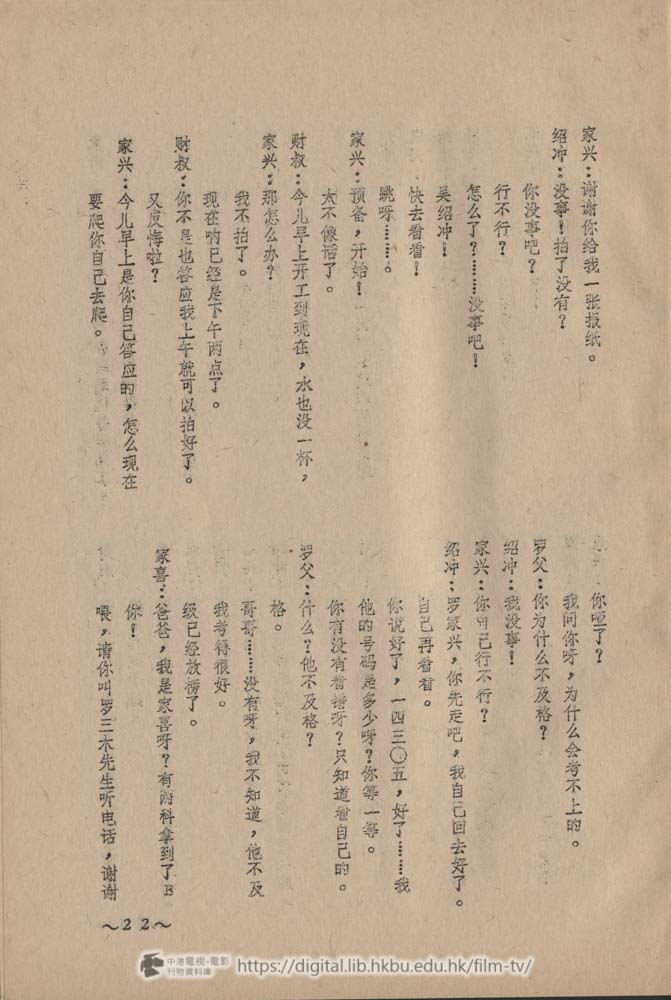 要爬你自己去爬。
家兴：今儿早上是你自己答应的，怎么现在
又反悔啦？
财叔：你不是也答应我上午就可以拍好了。
现在呐已经是下午两点了。
我不拍了。
家兴：那怎么办？
财叔：今儿早上开工到现在，水也没一杯，
太不像话了。
家兴：预备，开始！
跳呀………。
快去看看！
吴绍冲！
怎么了？………没事吧！
行不行？
你没事吧？
绍冲：没事！拍了没有？
家兴：谢谢你给我一张报纸。
喂，请你叫罗三木先生听电话，谢谢
你！
家喜：爸爸，我是家喜呀？有两科拿到了B
级已经放榜了。
我考得很好。
哥哥………没有呀，我不知道，他不及
格。
罗父：什么？他不及格？
你有没有看错呀？只知道看自己的。
他的号码是多少呀？你等一等。
你说好了，一四三〇五，好了………我
自己再看看。
绍冲：罗家兴，你先走吧，我自己回去好了。
家兴：你自己行不行？
绍冲：我没事！
罗父：你为什么不及格？
我问你呀，为什么会考不上的。
你哑了？
～22～
中港電視·電影
刊物資料庫
https://digital.lib.hkbu.edu.hk/film-tv/